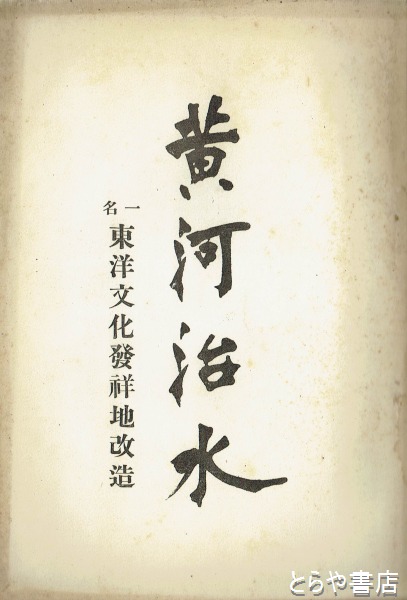 黄河治水
一名
東洋文化發祥地改造
とらや書店